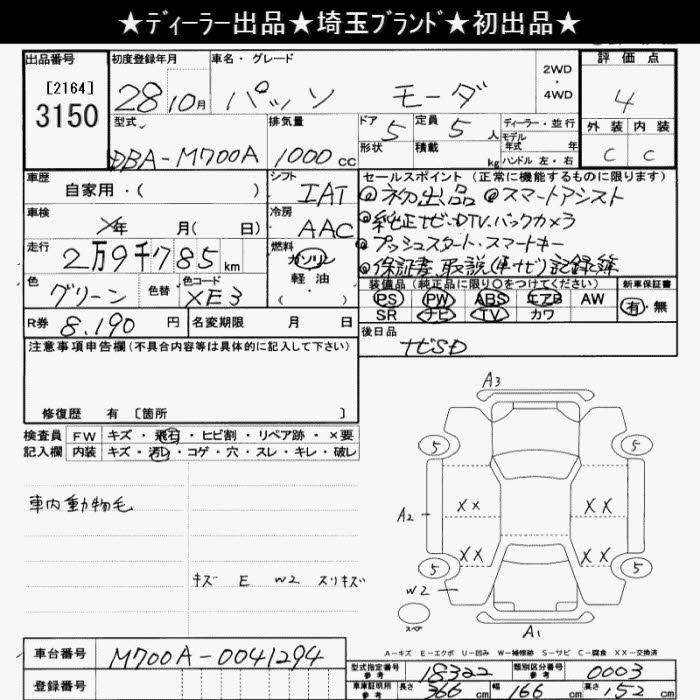 ★ディーラー出品★埼玉ブランド★初出品★
出品番号 初度登録年月 車名・グレード 2WD・4WD 評価点
[2164]
3150 28 10月 パッソ モーダ 4
型式 排気量 ドア 5 定員 5人 ディーラー・並行 外装 内装
DBA-M700A 1000cc 形状 積載 kg モデル年式 年 ハンドル 左・右 C C
車歴 シフト セールスポイント (正常に機能するものに限ります)
自家用・( ) IAT ◎初出品 ◎スマートアシスト
車検 年 月( 日) 冷房 AAC ◎純正ナビ・DTV.バックカメラ
走行 2万9千785km 燃料 ガソリン 軽油 ・( ) ◎プッシュスタート・スマートキー
◎保証書、取説(車ナビ)記録簿
色 グリーン 色替 色コード XE3 装備品 (純正品に限り○をつけてください) 新車保証書
PS PW ABS エアB AW 有・無
SR ナビ TV カワ
R券 8,190円 名変期限 月 日 後日品
注意事項申告欄(不具合内容等は具体的に記入して下さい) ナビSD
修復歴 有 [箇所 ]
検査員 FW キズ・飛石・ヒビ割・リペア跡・×要
記入欄 内装 キズ・汚レ・コゲ・穴・スレ・キレ・破レ
A3
5 5
車内動物毛 XX XX
A2
XX XX
キズ E W2 スリキズ 5 5
W2
スペア
A1
A-キズ E-エクボ U-凹み W-補修跡 S-サビ C-腐食 XX-交換済
車台番号 M700A-0041294
型式指定番号 参考 18322 類別区分番号 参考 0003
登録番号 車庫証明用 参考 長さ 366cm 幅 166cm 高さ 152cm